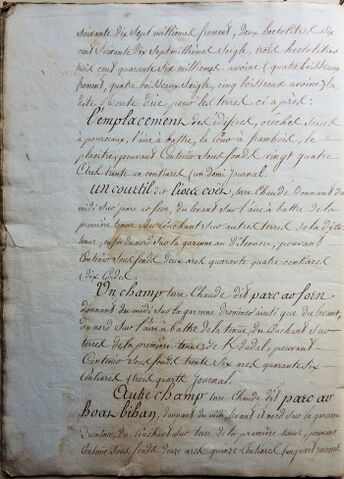 soixante dix Sept millièmes froment, deux hectolitres six
cent Soixante dix Septmillièmes Seigle, trois hectolitres
trois cent quarante Six millièmes avoine (quatre boisseaux
froment, quatre boisseaux Seigle, cinq boisseaux avoine) la
dite Rente due pour les terres ci après:
l'emplacement des édifices, crêches Soues
à pourceaux, l'aire à battre, la cour à framboid, le
placitre, pouvant Contenir Sous fonds vingt quatre
ares trente un centiares (un demi Journal.
un courtil dit Liors coch, terre Chaude donnant du
midi Sur parc ao forn, du levant Sur l'aire à battre de la
première tenue, du Couchant Sur autre terres de la dite
tenue, enfin du nord Sur la garenne au Ditennou, pouvant
Contenir Sous fonds deux ares quarante quatre centiares
(dix Cordes
Un champ terre Chaude dit parc ao forn
donnant du midi Sur la garenne ainsi que du levant,
du nord Sur l'aire à battre de la tenue, du Couchant Sur
terres de la première tenue de K pouvant
Contenir Sous fonds trente Six ares quarante Six
Centiares (trois quarts Journal.
Autre champ terre Chaude dit parc ao
hoas bihan, donnant du midi, levant et nord Sur la garenne
du couchant Sur terre de la première tenue, pouvant
Contenir Sous fonds douze ares quinze Centiares (un quart